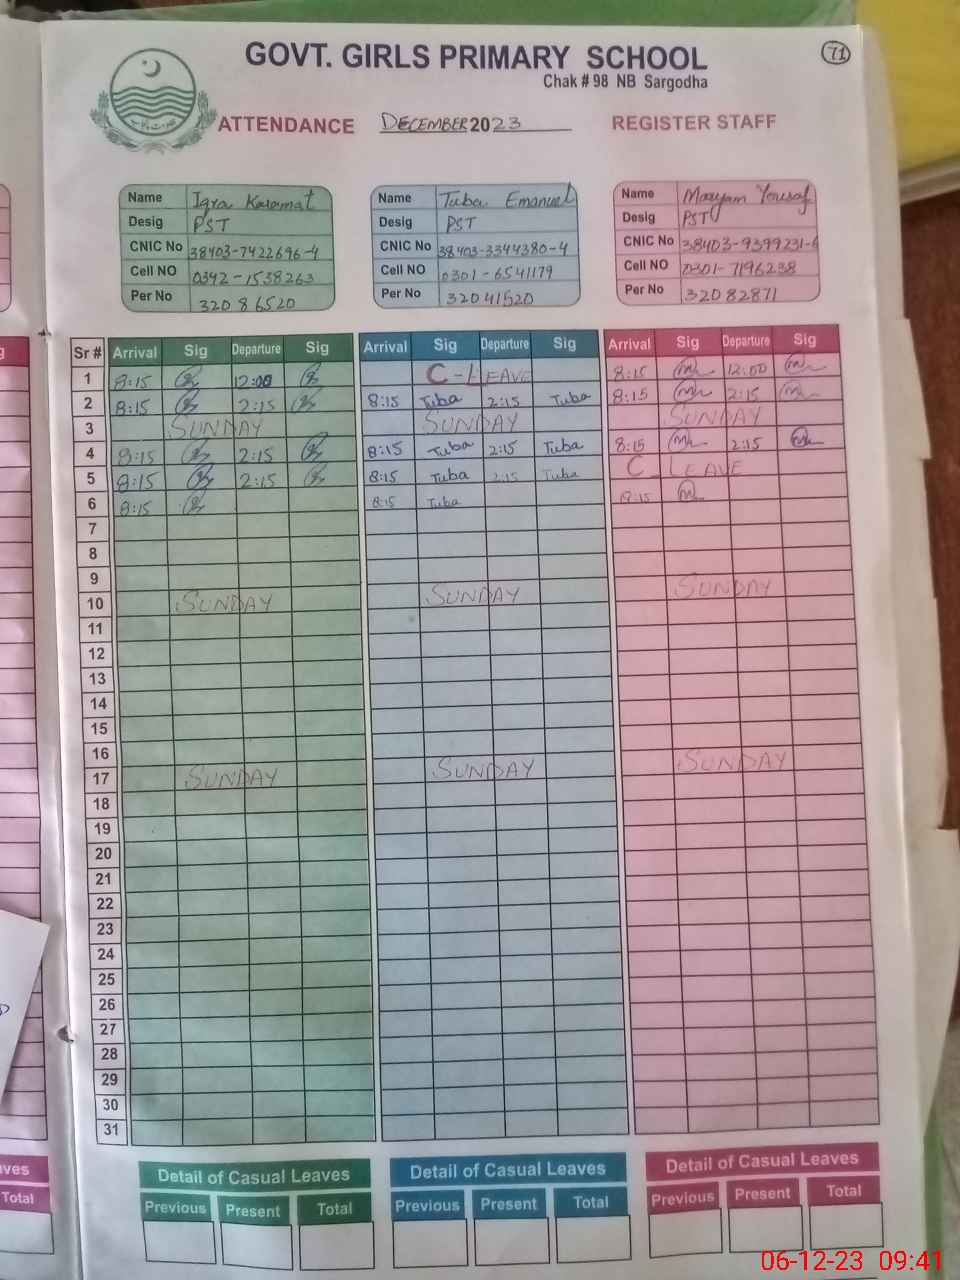 GOVT. GIRLS PRIMARY SCHOOL
71
Chak # 98 NB Sargodha
ATTENDANCE DECEMBER 2023 REGISTER STAFF
Name Iqra Karamat
Desig PST
CNIC No 38403-7422696-4
Cell NO 0342-1538263
Per No 32086520
Name Tuba Emanuel
Desig PST
CNIC No 38403-3344380-4
Cell NO 0301-6541179
Per No 32041520
Name Maryam Yousaf
Desig PST
CNIC No 38403-9399231-6
Cell NO 0301-7196238
Per No 32082871
Sr # Arrival Sig Departure Sig Arrival Sig Departure Sig Arrival Sig Departure Sig
1 8:15 12:00 C-LEAVE 8:15 12:00
2 8:15 2:15 8:15 Tuba 2:15 Tuba 8:15 2:15
3 SUNDAY SUNDAY SUNDAY
4 8:15 2:15 8:15 Tuba 2:15 Tuba 8:15 2:15
5 8:15 2:15 8:15 Tuba 2:15 Tuba C LEAVE
6 8:15 8:15 Tuba 8:15
7
8
9
10 SUNDAY SUNDAY SUNDAY
11
12
13
14
15
16
17 SUNDAY SUNDAY SUNDAY
18
19
20
21
22
23
24
25
26
27
28
29
30
31
Detail of Casual Leaves Detail of Casual Leaves Detail of Casual Leaves
Previous Present Total Previous Present Total Previous Present Total
Total
06-12-23 09:41